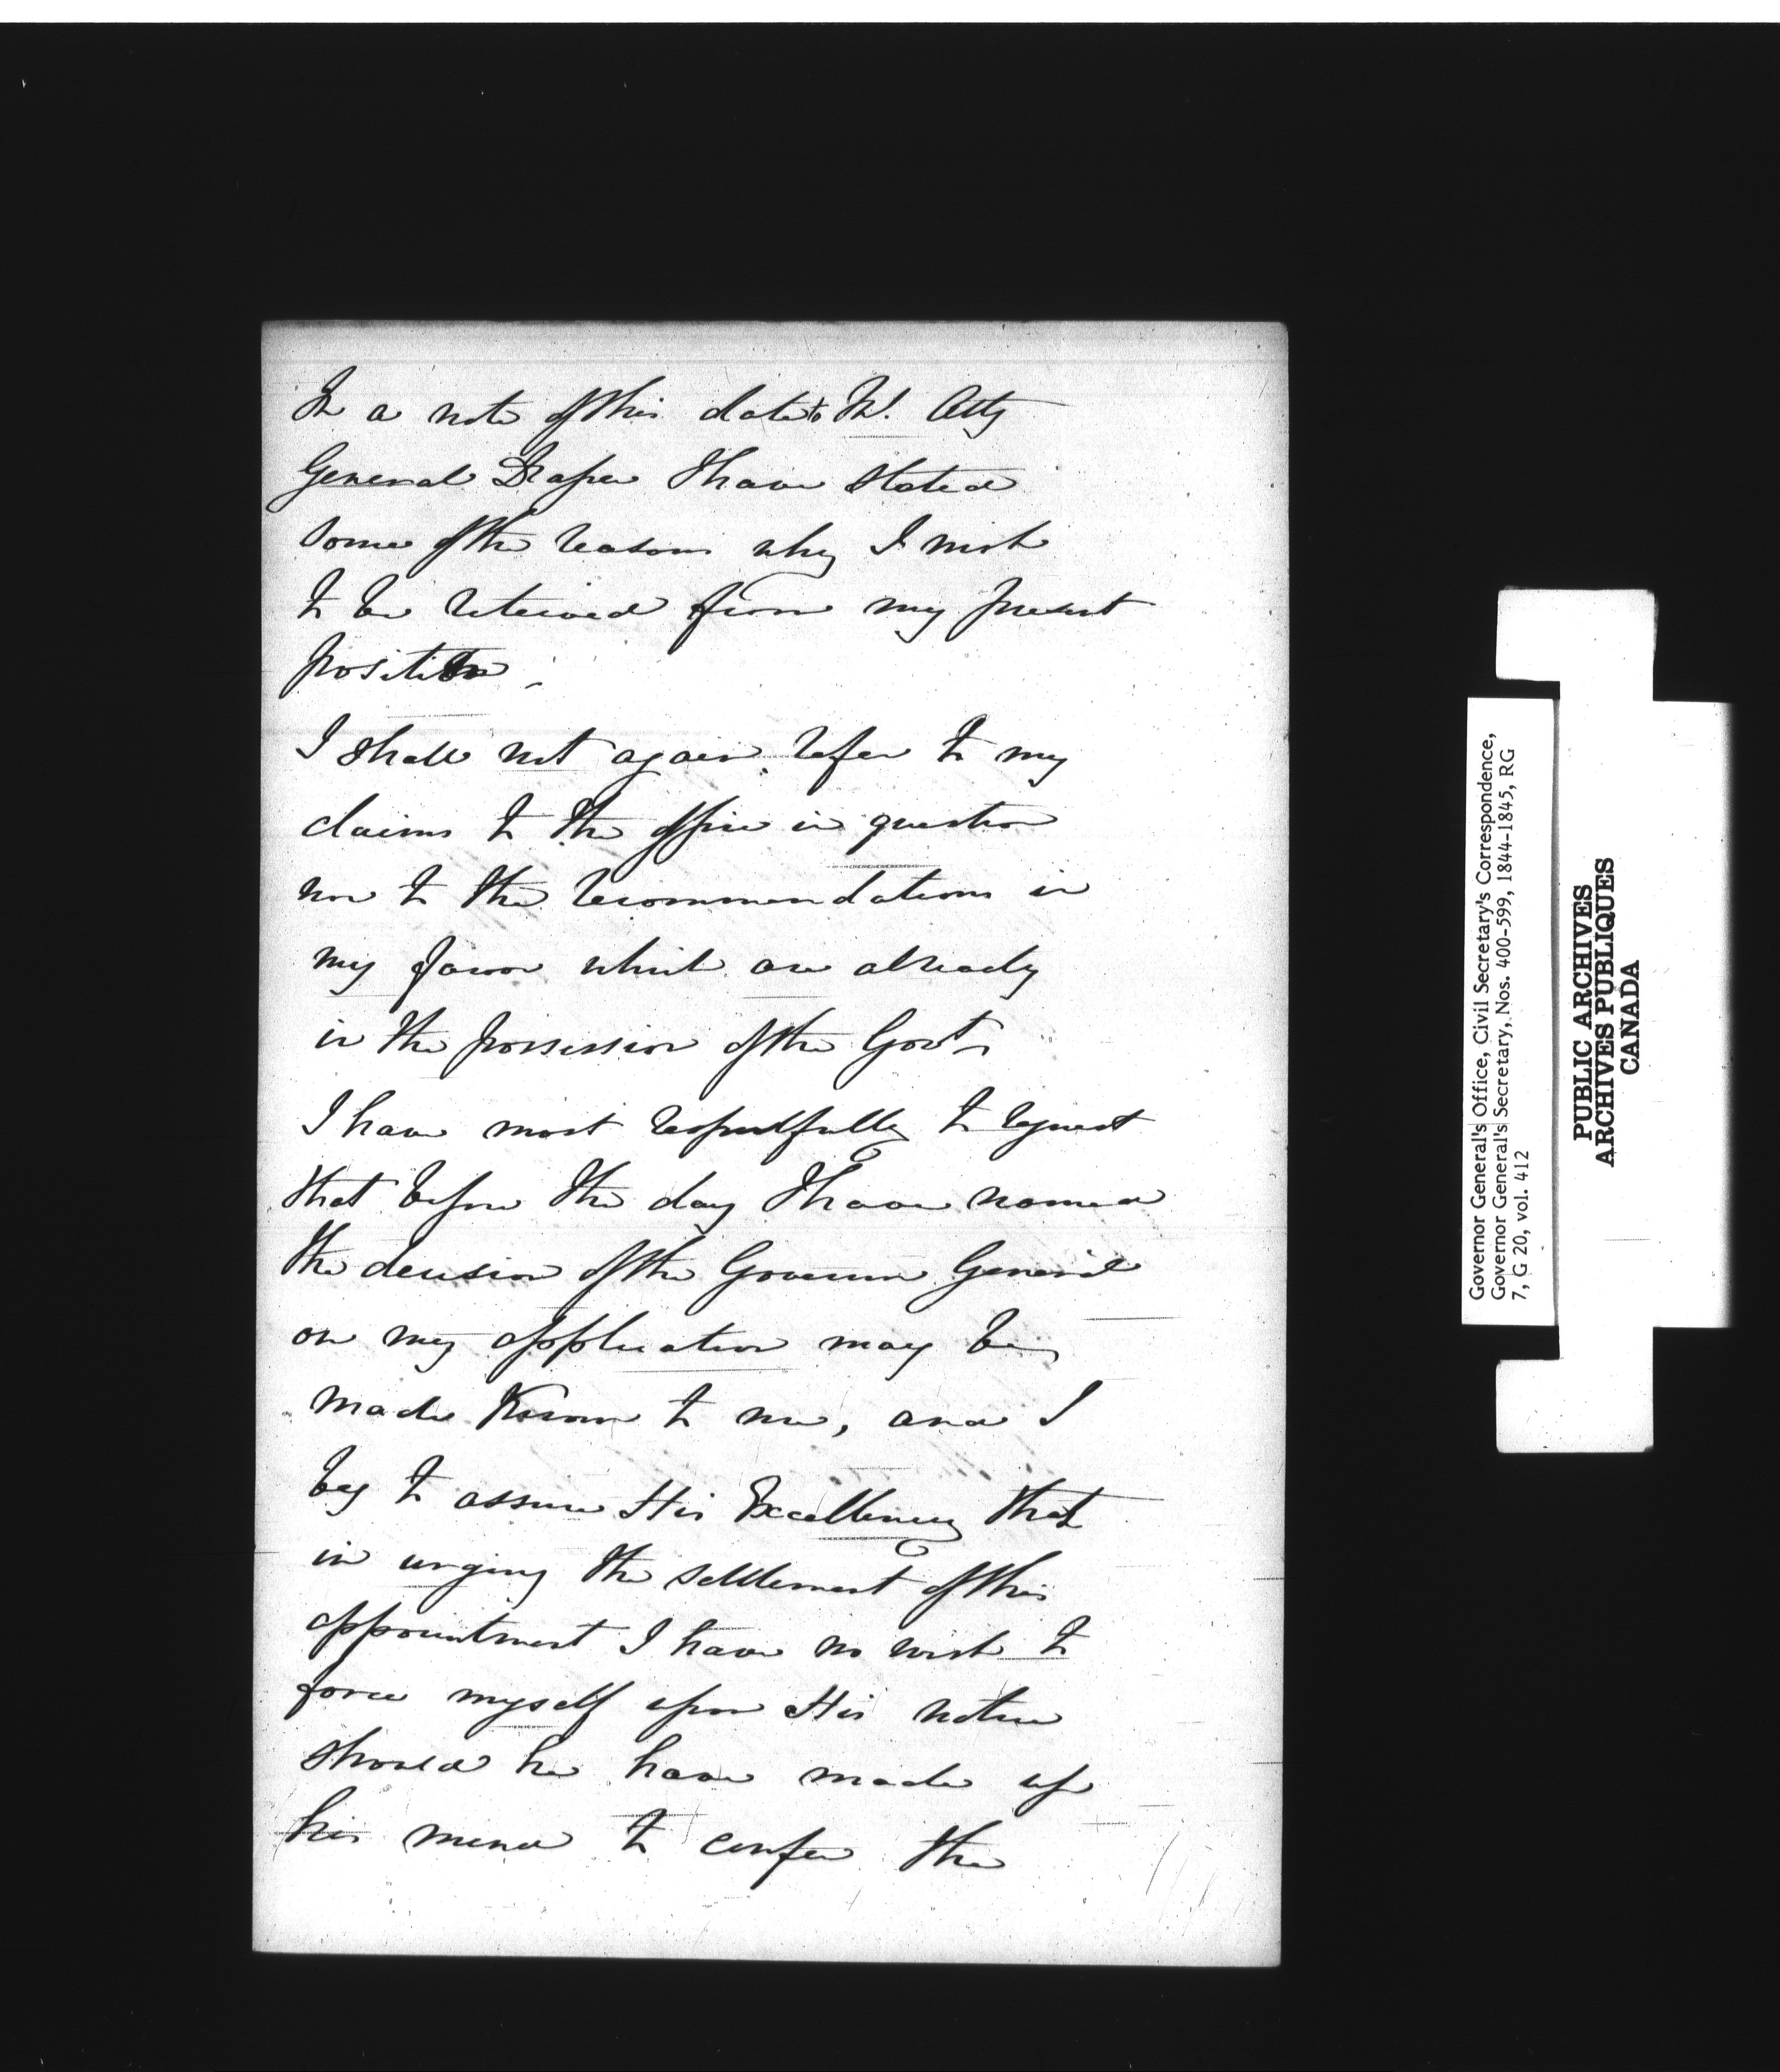 In a note of this date to Mr. Atty
General Draper I have stated
some of the reasons why I wish
to be relieved from my present
position.
I shall not again refer to my
claims to the office in question
nor to the recommendations in
my favor which are already
in the possession of the Govt.
I have most respectfully to request
that before the day I have named
the decision of the Governor General
on my application may be
made known to me, and I
beg to assure His Excellency that
in urging the settlement of this
appointment I have no wish to
force myself upon His notice
should he have made up
his mind to confer the
Governor General's Office, Civil Secretary's Correspondence,
Governor General's Secretary, Nos. 400-599, 1844-1845, RG
7, G 20, vol. 412
PUBLIC ARCHIVES
ARCHIVES PUBLIQUES
CANADA